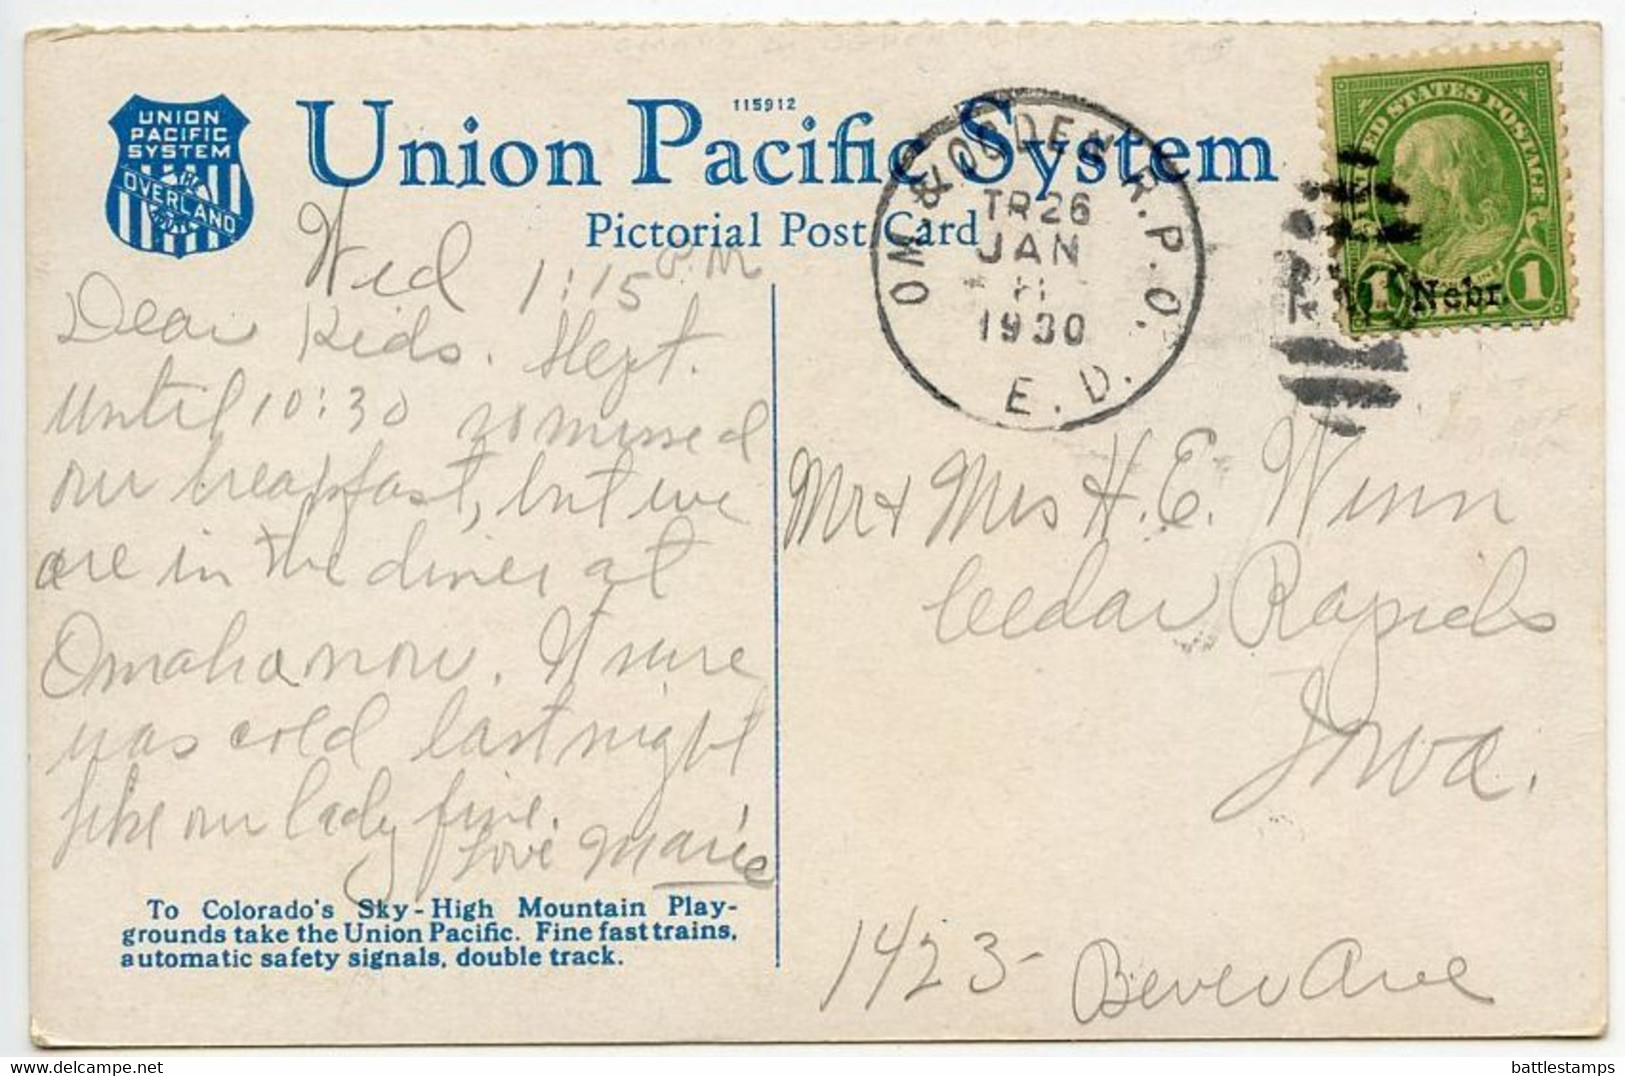 UNION
PACIFIC
SYSTEM
OVERLAND
Union Pacific System
115912
Pictorial Post Card
OM. & OGDEN R.P.O.
TR26
JAN
1930
E. D.
UNITED STATES POSTAGE
1 Nebr. 1
Wed 1:15 P.M
Dear Kids. Slept.
until 10:30 so missed
our breakfast, but we
are in the diner at
Omaha now. It sure
was cold last night
like our lady fine.
Love Marie
To Colorado's Sky-High Mountain Play-
grounds take the Union Pacific. Fine fast trains,
automatic safety signals, double track.
Mr + Mrs H. E. Winn
Cedar Rapids
Iowa.
1423- Bever Ave
battlestamps